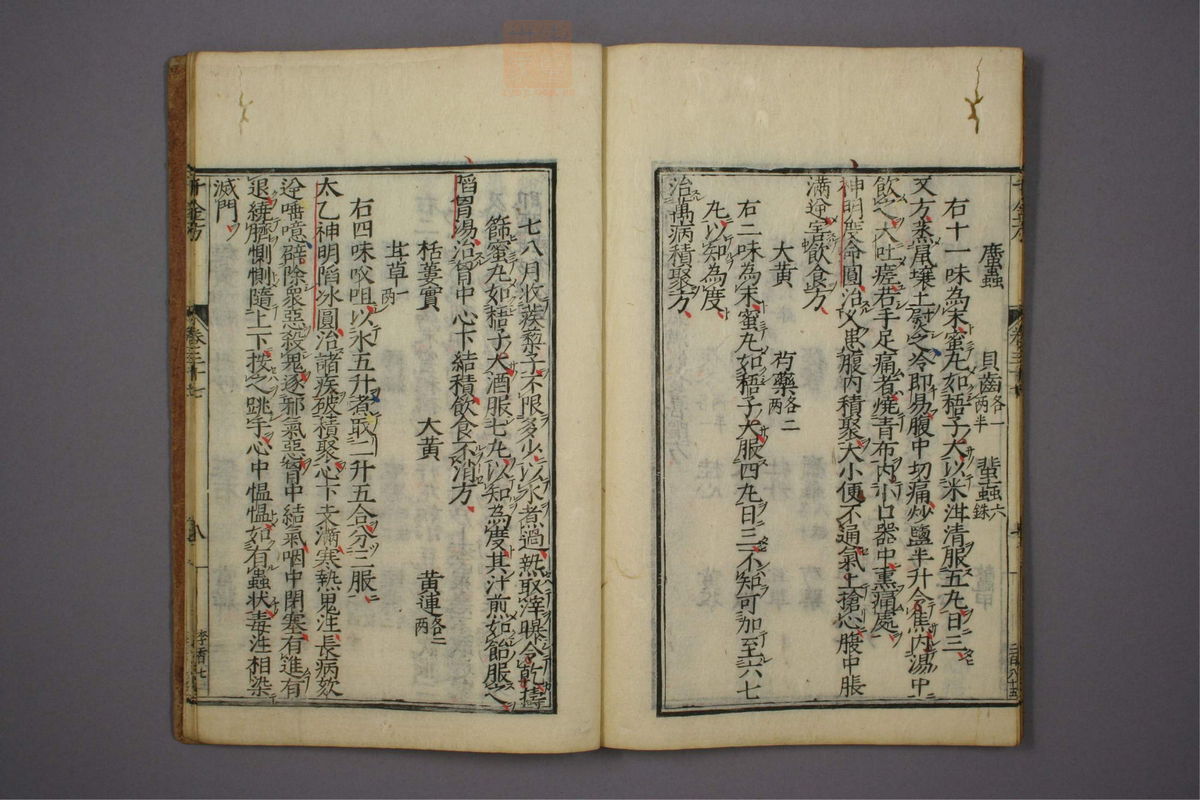 䗪蟲 貝齒各一兩半 蜚蟲六銖
右十一味為末蜜丸如梧子大以米泔清服五丸日三
又方蒸鼠壤土熨之冷即易腹中切痛炒鹽半升令焦内湯中
飲之大吐瘥若手足痛者燒青布内小口器中熏痛處
神明度命圓治久患腹内積聚大小便不通氣上搶心腹中脹
滿逆害飲食方
大黃 芍藥各二兩
右二味為末蜜丸如梧子大服四丸日三不知可加至六七
丸以知為度
治萬病積聚方
七八月收蒺梨子不限多少以水煮過熟取滓曝令乾擣
篩蜜丸如梧子大酒服七丸以知為度其汁煎如飴服之
陷胷湯治胷中心下結積飲食不消方
栝蔞實 大黃 黃連各二兩
甘草一兩
右四味㕮咀以水五升煮取二升五合分三服
太乙神明陷冰圓治諸疾破積聚心下支滿寒熱鬼注長病欬
逆唾噫辟除衆惡殺鬼逐邪氣惡胷中結氣咽中閉塞有進有
退繞臍惻惻隨上下按之跳手心中慍慍如有蟲狀毒注相染
滅門
千金方 卷三十七 八